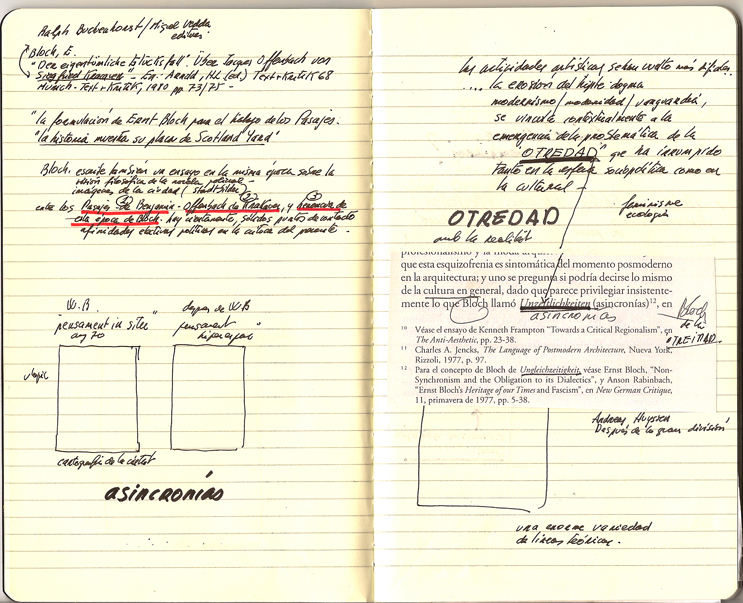 Ralph Buchenhorst / Miguel Vedda
editores
Bloch, E.
"Der eigentümliche Glücksfall". Über Jacques Offenbach von
Siegfried Kracauer" - En: Arnold, HL (ed.) Text+Kritik 68
Münich - Text+Kritik, 1980 pp. 73/75 -
"la formulación de Ernst Bloch para el trabajo de los Pasajes.
"la historia muestra su placa de Scotland Yard"
Bloch. escribe también un ensayo en la misma época sobre la
visión filosófica de la novela policial -
imágenes de la ciudad
entre los Pasajes de Benjamin - Offenbach de Kracauer, y herencia de
1 2 3
esta época de Bloch. hay ciertamente, sólidos puntos de contacto
afinidades electivas políticas en la crítica del presente.
W.B
"pensament in situ"
any 70
després de W.B
pensament
utopic
cartografia de la ciutat
asincronías
las actividades artísticas se han vuelto más difusas
.... la erosión del triple dogma
modernismo/modernidad/vanguardia,
se vincula contextualmente a la
emergencia de la problemática de la
OTREDAD" que ha irrumpido
tanto en la esfera sociopolítica como en
la cultural -
feminisme
ecología
OTREDAD
amb la realitat
que esta esquizofrenia es sintomática del momento posmoderno
en la arquitectura; y uno se pregunta si podría decirse lo mismo
de la cultura en general, dado que parece privilegiar insistente-
mente lo que Bloch llamó (asincronías)¹², en
asincronías
Bloch
de la
OTREDAD
¹⁰ Véase el ensayo de Kenneth Frampton "Towards a Critical Regionalism", en
The Anti-Aesthetic, pp. 23-38.
¹¹ Charles A. Jencks, The Language of Postmodern Architecture, Nueva York,
Rizzoli, 1977, p. 97.
¹² Para el concepto de Bloch de Ungleichzeitigkeit, véase Ernst Bloch, "Non-
Synchronism and the Obligation to its Dialectics", y Anson Rabinbach,
"Ernst Bloch's Heritage of our Times and Fascism", en New German Critique,
11, primavera de 1977, pp. 5-38.
Andreas Huyssen
Después de la gran división
una enorme variedad
de líneas teóricas.